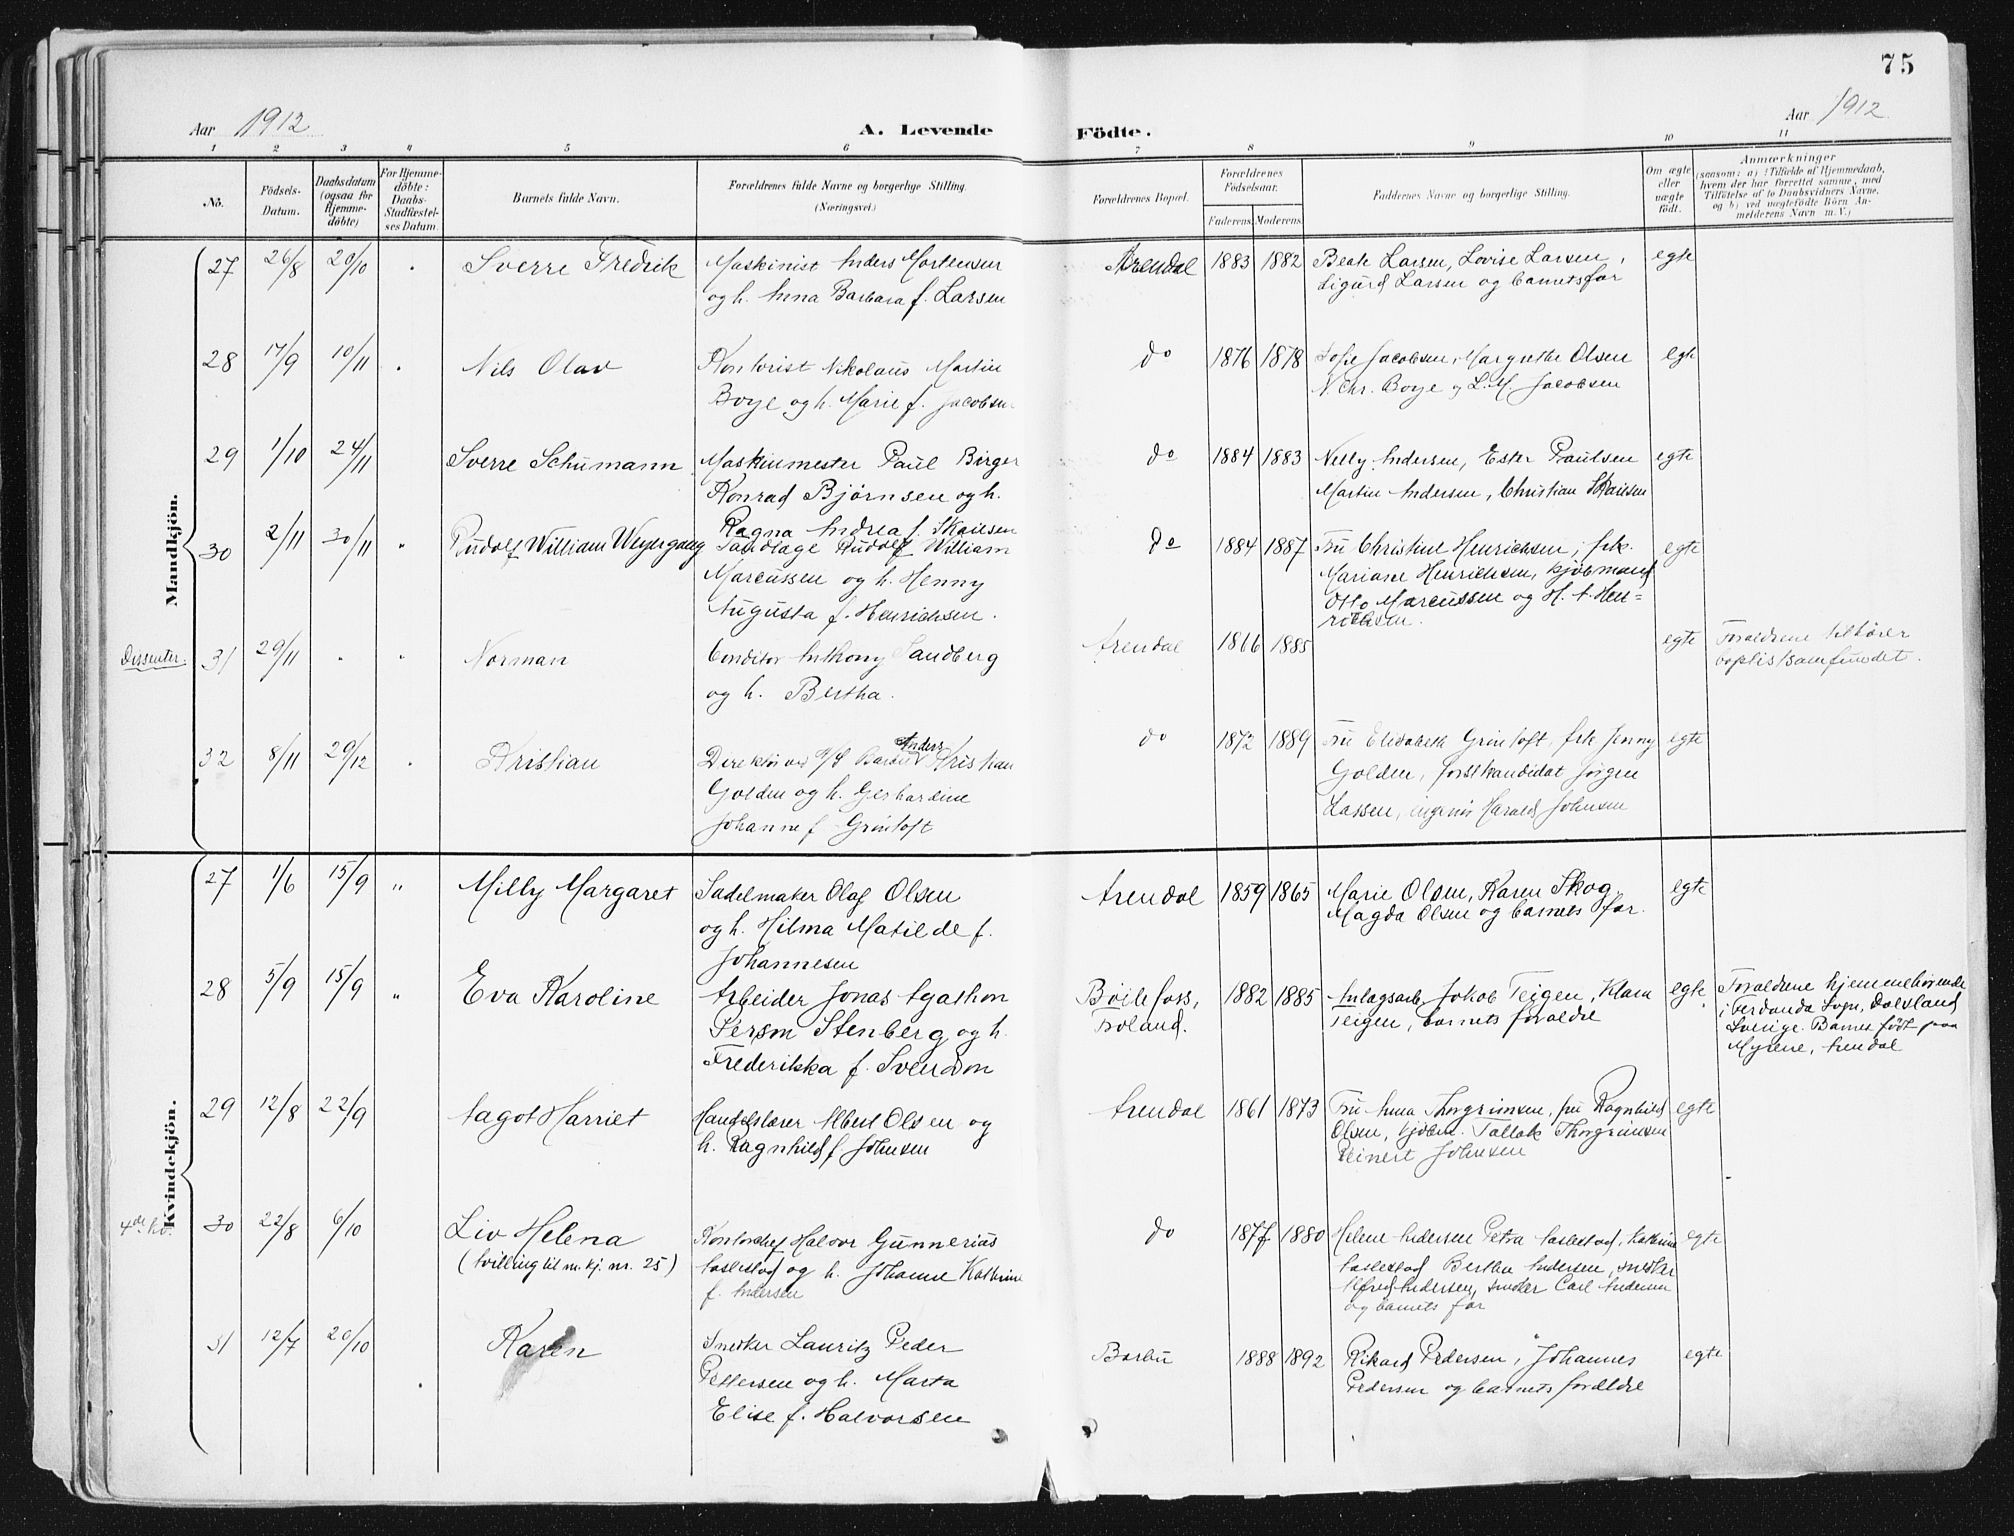 75
Aar 1912
A. Levende Födte.
Aar 1912
1 2 3 4 5 6 7 8 9 10 11
No.
Födsels-Datum.
Daabsdatum (ogsaa for Hjemme-döbte)
For Hjemme-döbte: Daabs-Stadfæstel-ses Datum.
Barnets fulde Navn.
Forældrenes fulde Navne og borgerlige Stilling. (Næringsvei.)
Forældrenes Bopæl.
Forældrenes Födselsaar.
Faderens. Moderens.
Faddernes Navne og borgerlige Stilling.
Om ægte eller uægte födt.
Anmærkninger
(saasom: a) i Tilfælde af Hjemmedaab,
hvem der har forrettet samme, med
Tilföielse af to Daabsvidners Navne.
og b) ved uægtefödte Börn An-
melderens Navn m.V.)
Mandkjön.
27 26/8 20/10 Sverre Fredrik Maskinist Anders Mortensen Arendal 1883 1882 Beate Larsen, Lovise Larsen, egte
og h. Anna Barbara f. Larsen Sigurd Larsen og barnets far
28 17/9 10/11 Nils Olav Kontorist Nikolaus Martin do 1876 1878 Sofie Jacobsen, Margrethe Olsen egte
Boye og h. Marie f. Jacobsen N. Chr. Boye og L. M. Jacobsen
29 1/10 24/11 Sverre Schumann Maskinmester Paul Birger do 1884 1883 Nelly Andersen, Ester Paulsen egte
Konrad Bjørnsen og h. Martin Andersen, Christian Skailsen
Ragna Andrea f. Skailsen
30 2/11 30/11 " Rudolf William Weyergang Tandlæge Rudolf William do 1884 1887 Fru Christine Henrichsen, frk. egte
Marcussen og h. Henny Mariane Henrichsen, kjøbmand
Augusta f. Henrichsen. Otto Marcussen og H. A. Hen=
richsen.
Dissenter. 31 29/11 " " Norman Conditor Anthony Sandberg Arendal 1866 1885 egte Forældrene tilhører
og h. Bertha. baptistsamfundet.
32 8/11 29/12 Kristian Direktør ved A/S Barbu Anders Kristian do 1872 1889 Fru Elisabeth Grinloft, frk Jenny egte
Golden og h. Gerhardine Golden, forstkandidat Jørgen
Johanne f. Grinloft Lassen, ingeniør Harald Johnsen
Kvindekjön.
27 1/6 15/9 " Milly Margaret Sadelmaker Olaf Olsen Arendal 1859 1865 Marie Olsen, Karen Skog, egte
og h. Hilma Matilde f. Magda Olsen og barnets far.
Johannesen
28 5/9 15/9 " Eva Karoline Arbeider Jonas Agathon Bøilefoss, 1882 1885 Anlagsarb. Jakob Teigen, Klara egte Forældrene hjemmehørende
Persøn Stenberg og h. Froland. Teigen, barnets forældre i Ferdanda Sogn, Dalsland
Frederikka f. Svendson Sverige. Barnet født paa
Myrene, Arendal
29 12/8 22/9 Aagot Harriet Handelslærer Albert Olsen og Arendal 1861 1873 Fru Anna Thorgrimsen, fru Ragnhild egte
h. Ragnhild f. Johnsen Olsen, kjøbm. Tallak Thorgrimsen
Reinert Johnsen
4de kv. 30 22/8 6/10 Liv Helena Kontorchef Halvor Gunnerias do 1877 1880 Helene Andersen Petra Aaslestad, Kathrine egte
(tvilling til m. kj. nr. 25) Aaslestad og h. Johanne Kathrine Aaslestad Bertha Andersen, snekker
f. Andersen Alfred Andersen, snekker Carl Andersen
og barnets far
31 12/7 20/10 Karen Snekker Lauritz Peder Barbu 1888 1892 Rikard Pedersen, Johannes egte
Pettersen og h. Marta Pedersen og barnets forældre
Elise f. Halvorsen